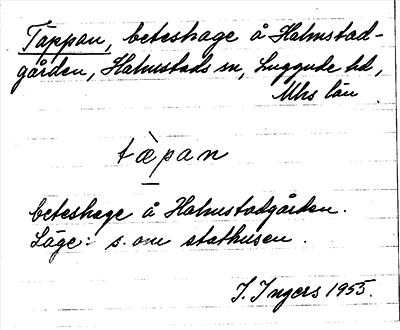 Tappan, beteshage å Halmstad-
gården, Halmstads sn, Luggude hd,
Mhs län.
tæ̀pan
beteshage å Halmstadgården.
Läge: s. om stathusen.
I. Ingers 1955.